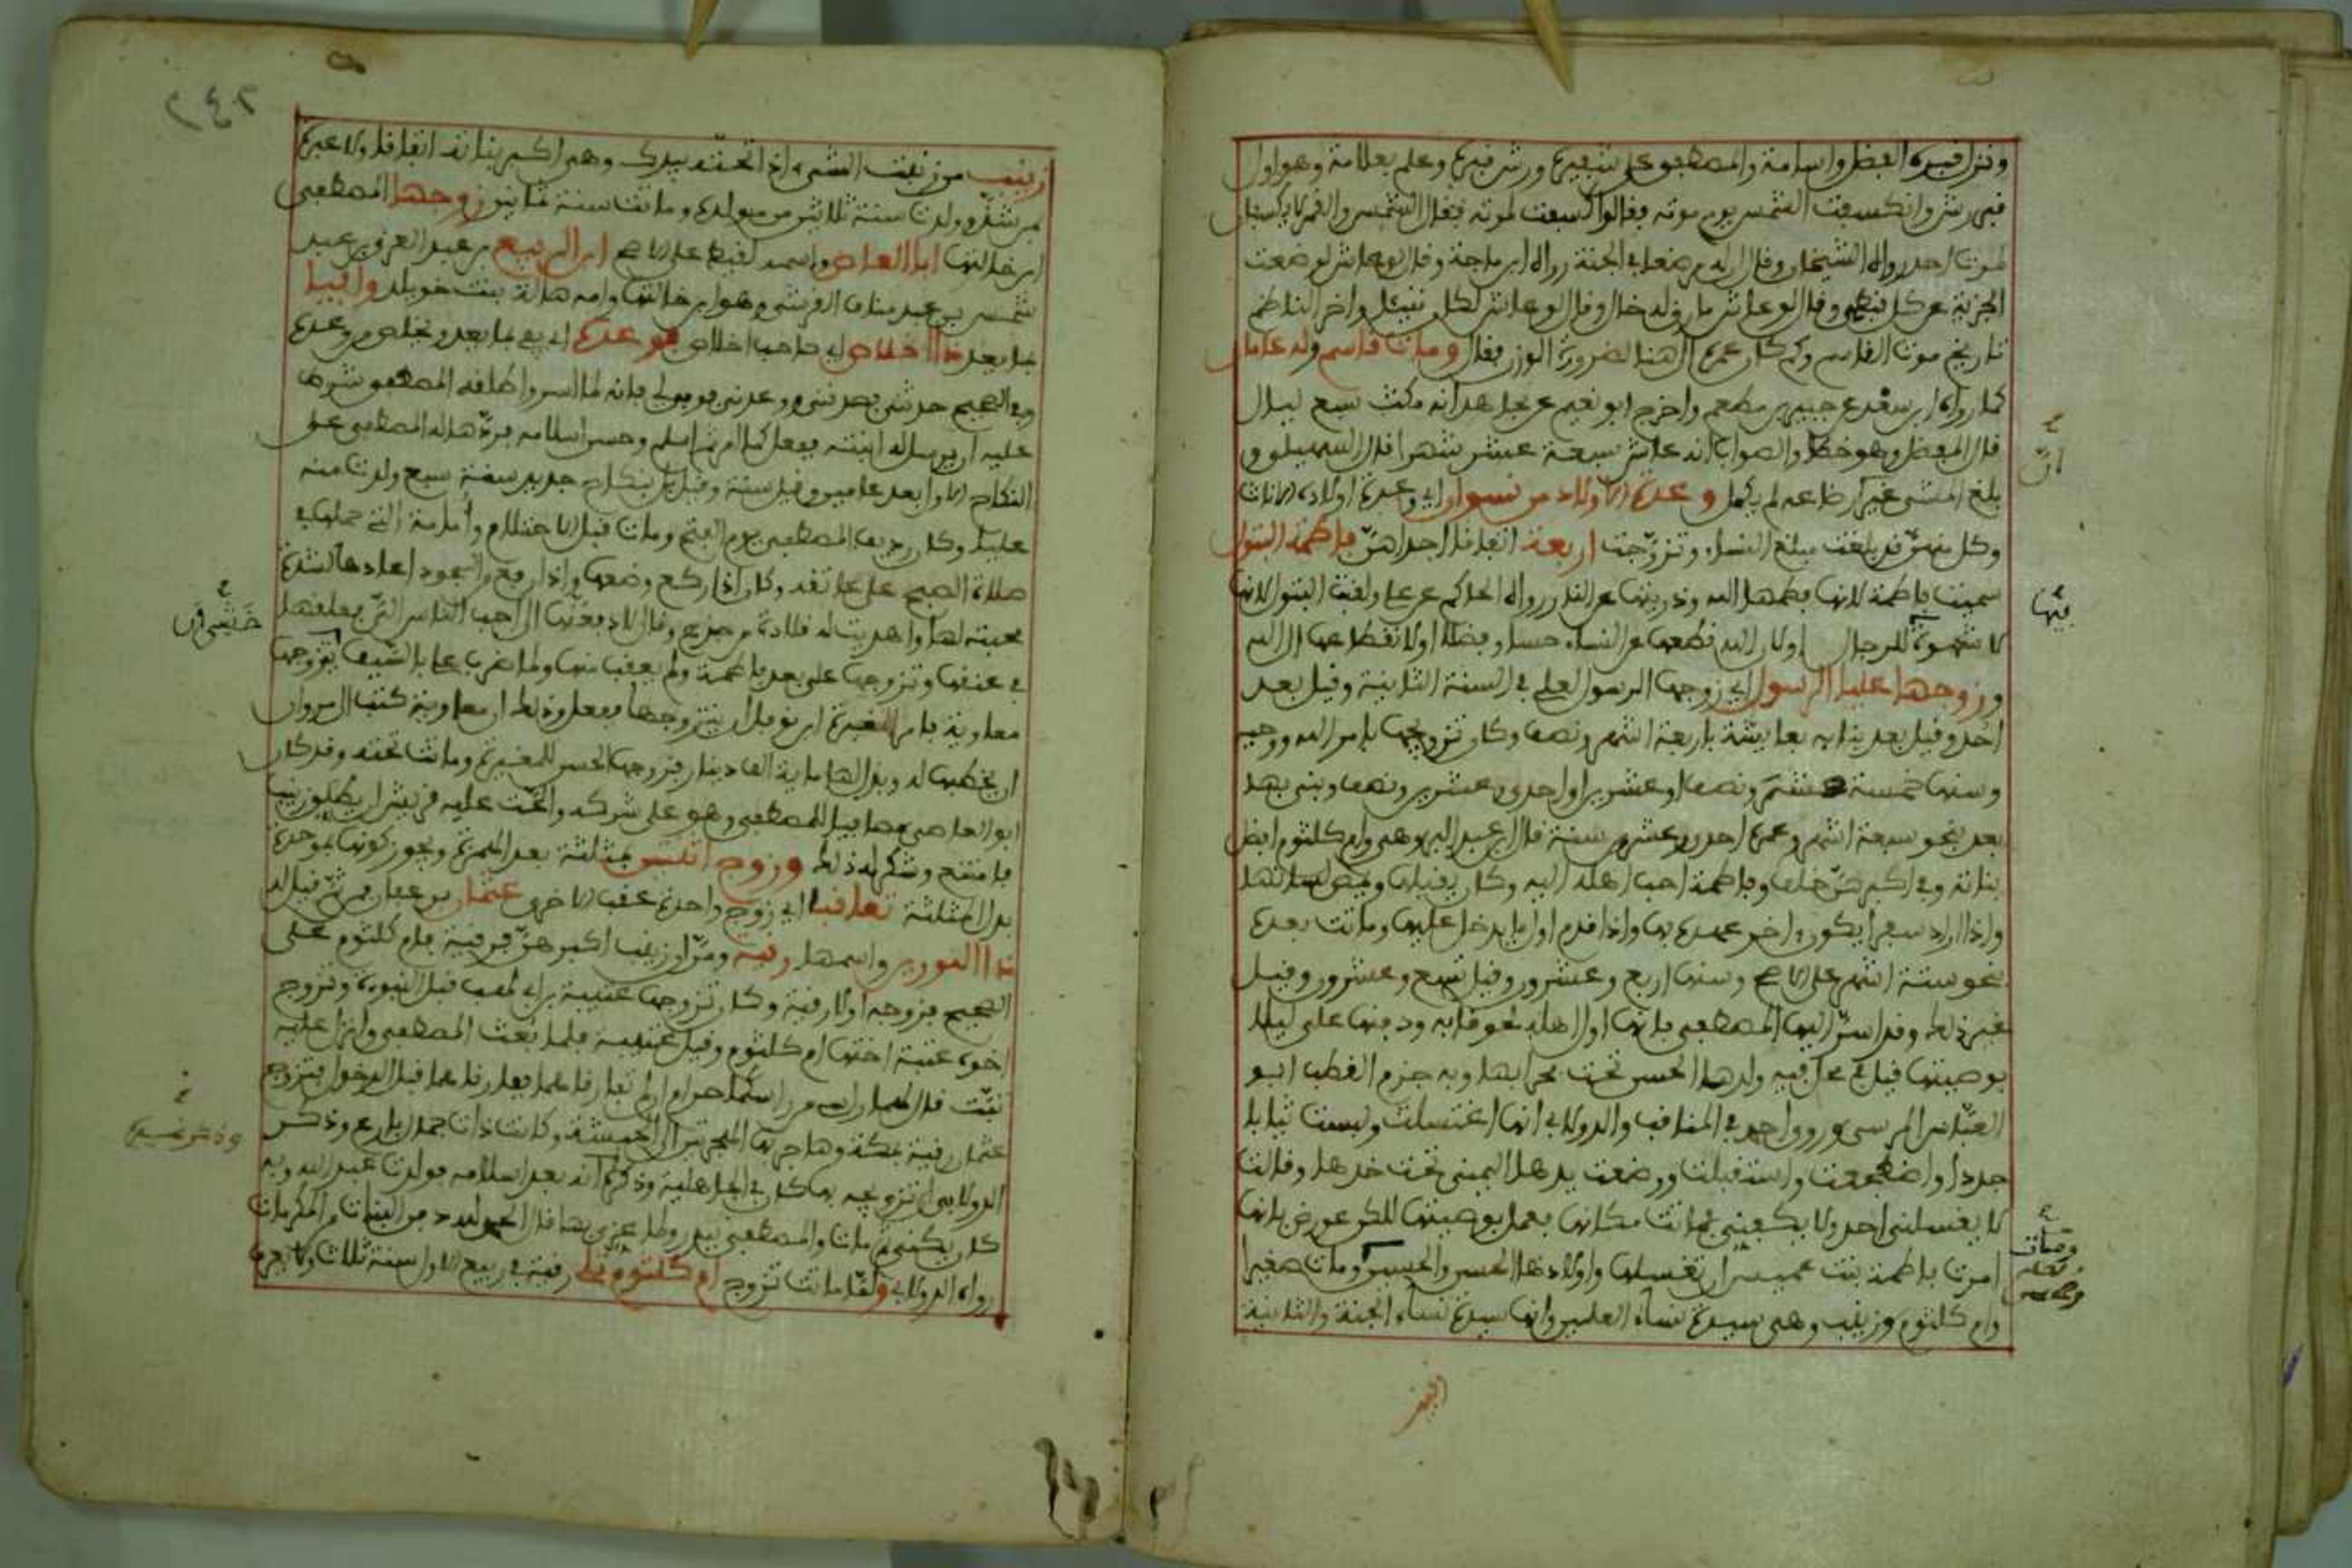 ونزل قبره الفضل واسامة والمصطفى على شفيره ورش قبره وعلم بعلامة وهو اول
قبر رش وانكسفت الشمس يوم موته فقالوا كسفت لموته فقال الشمس والقمر لا يكسفان
لموت احد رواه الشيخان وقال ان له مرضعا في الجنة رواه ابن ماجة وقال لو عاش لوضعت
الجزية عن كل قبطي وقال لو عاش ما رق له خال وقال لو عاش لكان نبيا واخر الناظم
تاريخ موت القاسم وكم كان عمره الى هنا لضرورة الوزن فقال ومات قاسم وله عامان
كما رواه ابن سعد عن جبير بن مطعم واخرج ابو نعيم عن مجاهد انه مكث سبع ليال
قال المفضل وهو خطا والصواب انه عاش سبعة عشر شهرا قال السهيلي و
بلغ المشي غير ان رضاعه لم يكمل وعدة الاولاد من نسوان اي وعدة اولاده الاناث
وكل منهن قد بلغت مبلغ النساء وتزوجت اربعة اتفاقا احداهن فاطمة البتول
سميت فاطمة لان الله فطمها وذريتها عن النار رواه الحاكم عن علي ولقبت البتول لانها
لا شهوة للرجال اولان الله قطعها عن النساء حسنا وفضلا اولانقطاعها الى الله
وزوجها عليا الرسول اي زوجها الرسول لعلي في السنة الثانية وقيل بعد
احد وقيل بعد بنايه بعايشة باربعة اشهر ونصف وكان تزويجها بامر الله ووحيه
وسنها خمسة عشر ونصف او عشرين او احدى وعشرين ونصف وبنى بها
بعد نحو سبعة اشهر وعمره احدى وعشرين سنة قال ابن عبد البر وهي وام كلثوم افضل
بناته وفي اكبرهن خلف وفاطمة احب اهله اليه وكان يقبلها ويمص لسانها
واذا اراد سفرا يكون اخر عهده بها واذا قدم اول ما يدخل عليها وماتت بعده
بنحو ستة اشهر على الاصح وسنها اربع وعشرون وقيل تسع وعشرون وقيل
غير ذلك وقد اسر اليها المصطفى بانها اول اهله لحوقا به ودفنها علي ليلا
بوصيتها قيل في محل فيه ولدها الحسن تحت محرابها وبه جزم القطب ابو
العباس المرسي وروى احمد في المناقب والدولابي انها اغتسلت ولبست ثيابا
جددا واضطجعت واستقبلت ووضعت يدها اليمنى تحت خدها وقالت
لا يغسلني احد ولا يكفنني فماتت مكانها فعمل بوصيتها لكن عورض بانها
امرت فاطمة بنت عميس ان تغسلها واولادها الحسن والحسين ومات صغيرا
وام كلثوم وزينب وهي سيدة نساء العالمين وانها سيدة نساء الجنة والثانية
ان
فيها
زينب من زنبت الشيء اذا نحته بيدك وهي اكبر بناته اتفاقا ولا عبرة
بمن شذ وولدت سنة ثلاثين من مولده وماتت سنة ثمان زوجها المصطفى
ابن خالتها ابا العاص واسمه لقيط على الاصح ابن الربيع بن عبد العزى بن عبد
شمس بن عبد مناف القرشي وهو ابن خالتها وامه هالة بنت خويلد وافيا
بما يعد ذا اخلاص اي صاحب اخلاص فى وعده اي يفي بما يعد ويخلص في وعده
وفي الصحيح حدثني فصدقني ووعدني فوفى لي فانه لما اسر واطلقه المصطفى شرط
عليه ان يرسل له ابنته ففعل كما امر ثم اسلم وحسن اسلامه فردها له المصطفى على
النكاح الاول بعد عامين وقيل سنة وقيل بل بنكاح جديد سنة سبع ولدت منه
عليا وكان رديف المصطفى يوم الفتح ومات قبل الاحتلام وامامة التي حملها في
صلاة الصبح على عاتقه وكان اذا ركع وضعها واذا رفع من السجود اعادها لشدة
محبته لها واهديت له قلادة من جزع وقال لادفعنها الى احب الناس الي فعلقها
في عنقها وتزوجها علي بعد فاطمة ولم يعقب منها ولما ضرب علي بالسيف يتزوجها
معاوية فامر المغيرة ابن نوفل ان يتزوجها ففعل وذلك ان معاوية كتب الى مروان
ان يخطبها له وبذل لها ماية الف دينار فزوجها الحسن للمغيرة وماتت تحته وقد كان
ابو العاصي مصافيا للمصطفى وهو على شركه والحت عليه قريش ان يطلق زينب
فامتنع وشكر له ذلك وزوج اثنتين بمثلثة بعد الهمزة ويجوز كونها بموحدة
بدل المثلثة تعاقبا اي زوج واحدة عقب الاخرى عثمان بن عفان فمن ثم قيل له
ذا النورين واسمها رقية ومر ان زينب اكبرهن فرقية فام كلثوم على
الصحيح فزوجه اولا رقية وكان تزوجها عتيبة بن ابي لهب قبل النبوة وتزوج
اخوه عتبة اختها ام كلثوم وقيل عتيبة فلما بعث المصطفى وانزل عليه
تبت قال لهما راسي من راسكما حرام ان لم تفارقاهما ففارقاهما قبل الدخول فتزوج
عثمان رقية بمكة وهاجر بها الهجرتين الى الحبشة وكانت ذات جمال بارع وذكر
الدولابي ان تزوجه بها كان في الجاهلية وذكر غيره انه بعد اسلامه فولدت عبد الله وبه
كان يكنى ثم ماتت والمصطفى ببدر ولما عزي بها قال الحمد لله دفن البنات من المكرمات
رواه الدولابي ولما ماتت تزوج ام كلثوم رقية في ربيع الاول سنة ثلاث ولا يجري
خشي ان